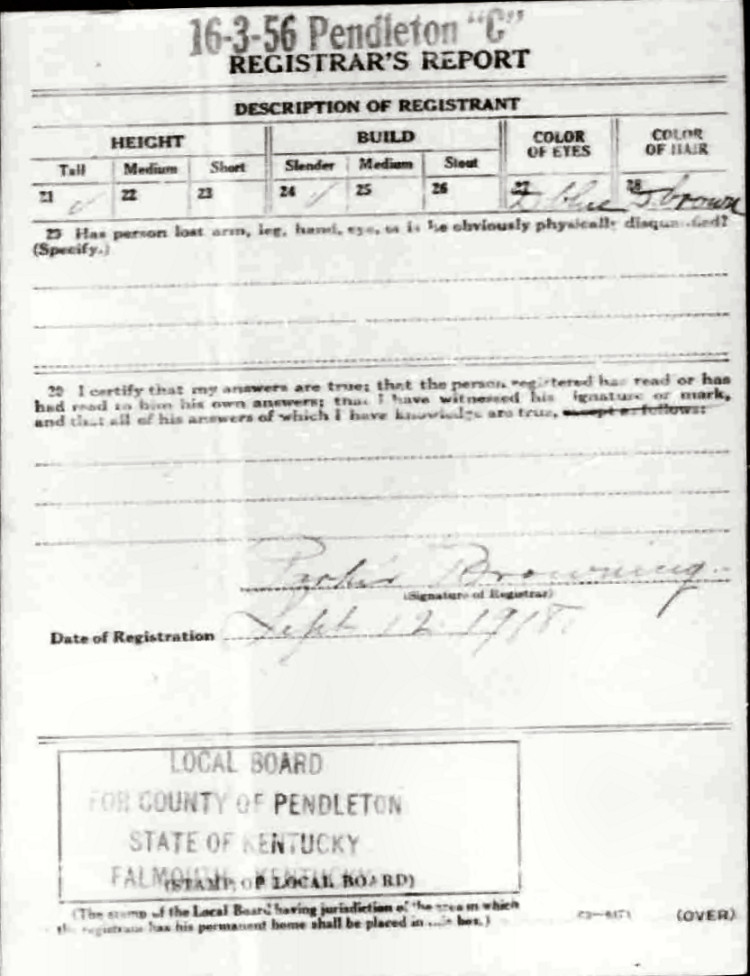 16-3-56 Pendleton "C"
REGISTRAR'S REPORT
DESCRIPTION OF REGISTRANT
HEIGHT BUILD COLOR OF EYES COLOR OF HAIR
Tall Medium Short Slender Medium Stout
21 ✓ 22 23 24 ✓ 25 26 27 blue 28 brown
29 Has person lost arm, leg, hand, eye, or is he obviously physically disqualified?
(Specify.)
30 I certify that my answers are true; that the person registered has read or has
had read to him his own answers; that I have witnessed his signature or mark,
and that all of his answers of which I have knowledge are true, except as follows:
Browning
(Signature of Registrar)
Date of Registration Sept 12 1918
LOCAL BOARD
FOR COUNTY OF PENDLETON
STATE OF KENTUCKY
FALMOUTH, KENTUCKY
(STAMP OF LOCAL BOARD)
(The stamp of the Local Board having jurisdiction of the area in which
the registrant has his permanent home shall be placed in this box.)
(OVER)